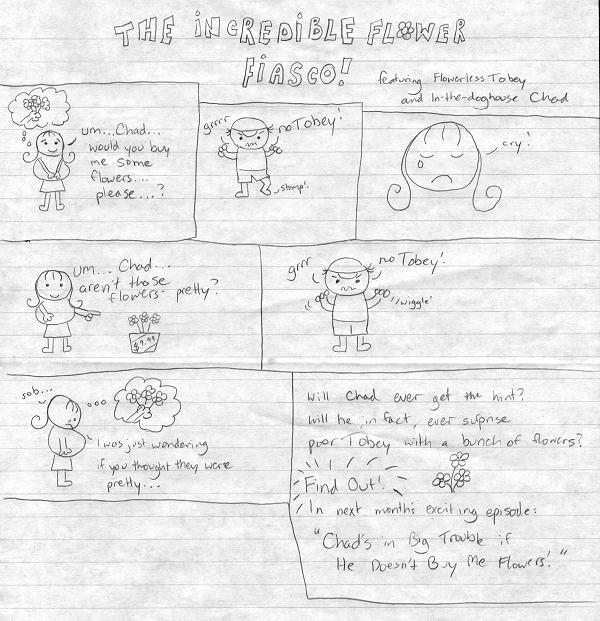 THE INCREDIBLE FLOWER
FIASCO!
featuring Flowerless Tobey
and In-the-doghouse Chad
um...Chad...
would you buy
me some
flowers...
please...?
grrrr
no Tobey!
stomp!
cry!
um... Chad...
aren't those
flowers pretty?
$9.99
grrr
no Tobey!
wiggle!
sob...
I was just wondering
if you thought they were
pretty...
Will Chad ever get the hint?
Will he, in fact, ever suprise
poor Tobey with a bunch of flowers?
Find Out!
In next month's exciting episode:
"Chad's in Big Trouble if
He Doesn't Buy Me Flowers!"